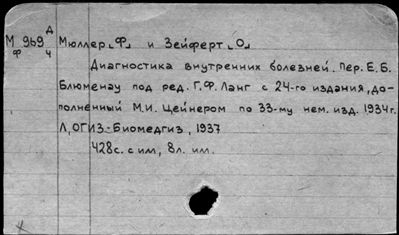 М 969 Д Мюллер „Ф“ и Зейферт „О“
Ф Ч
Диагностика внутренних болезней. Пер. Е.Б.
Блюменау под ред. Г.Ф. Ланг с 24-го издания, до-
полненный М.И. Цейнером по 33-му нем. изд. 1934г.
Л, ОГИЗ-Биомедгиз, 1937
428с. с ил, 8л. ил.